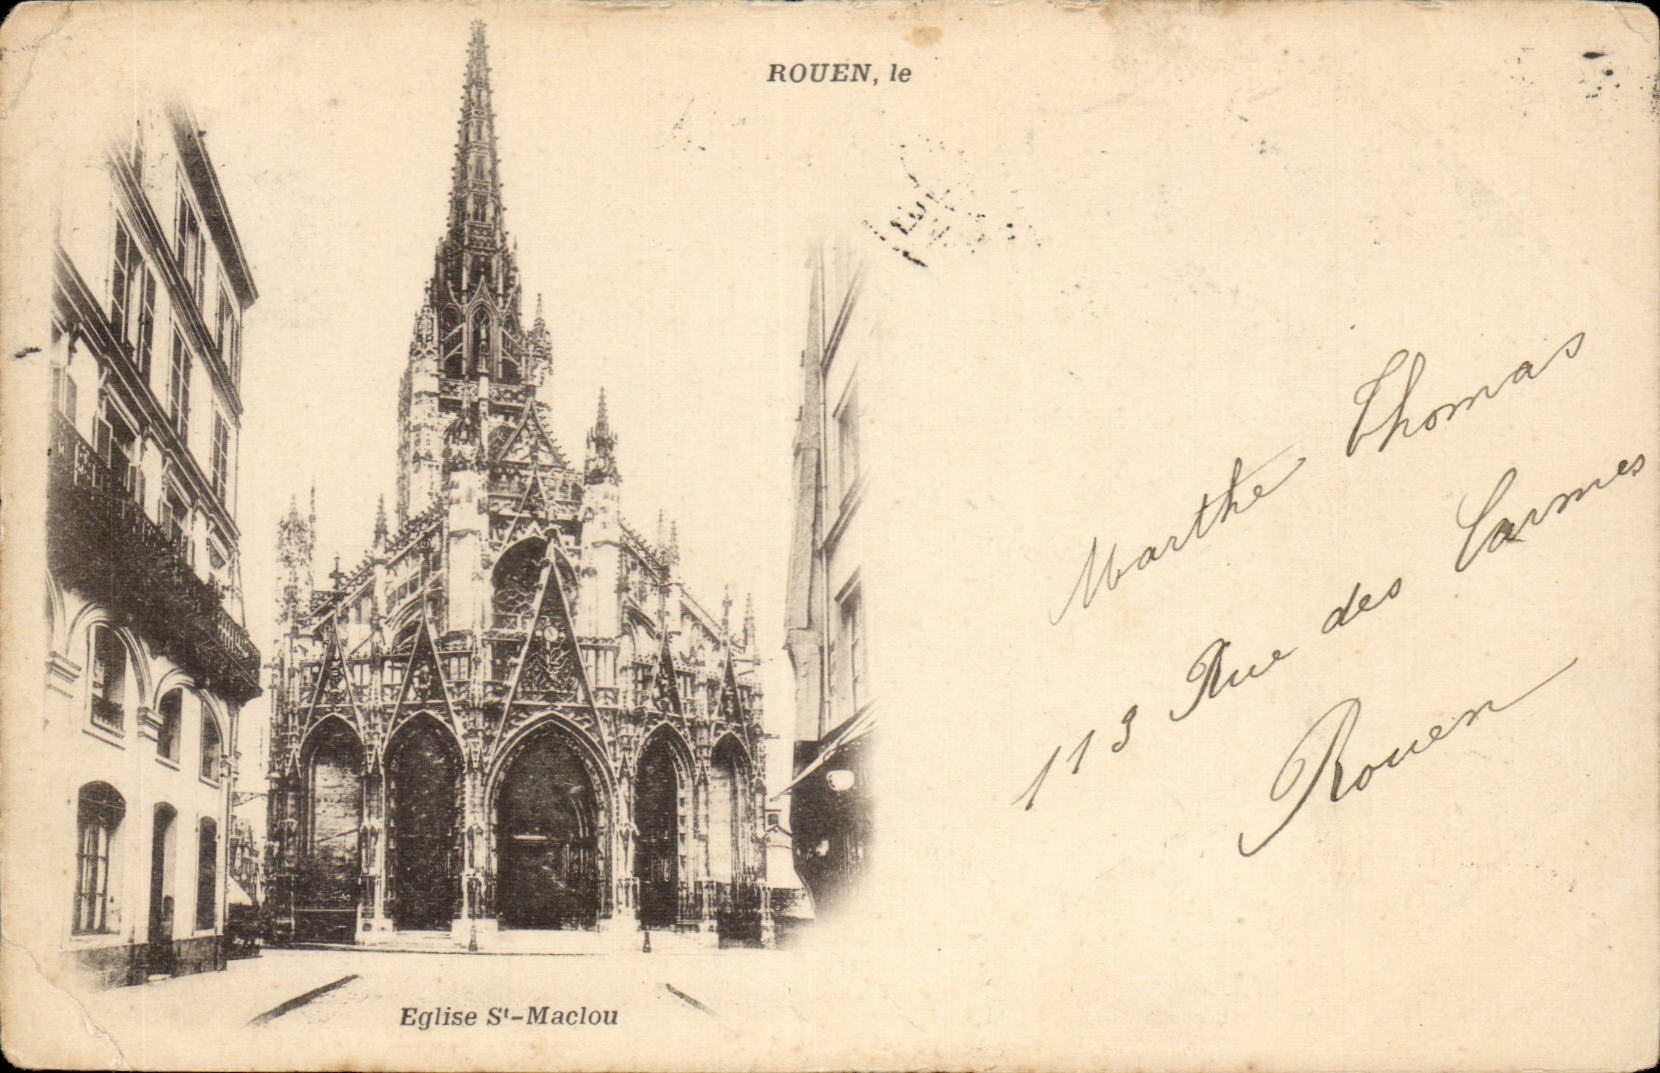 ROUEN, le
Marthe Thomas
113 Rue des Carmes
Rouen
Eglise St-Maclou